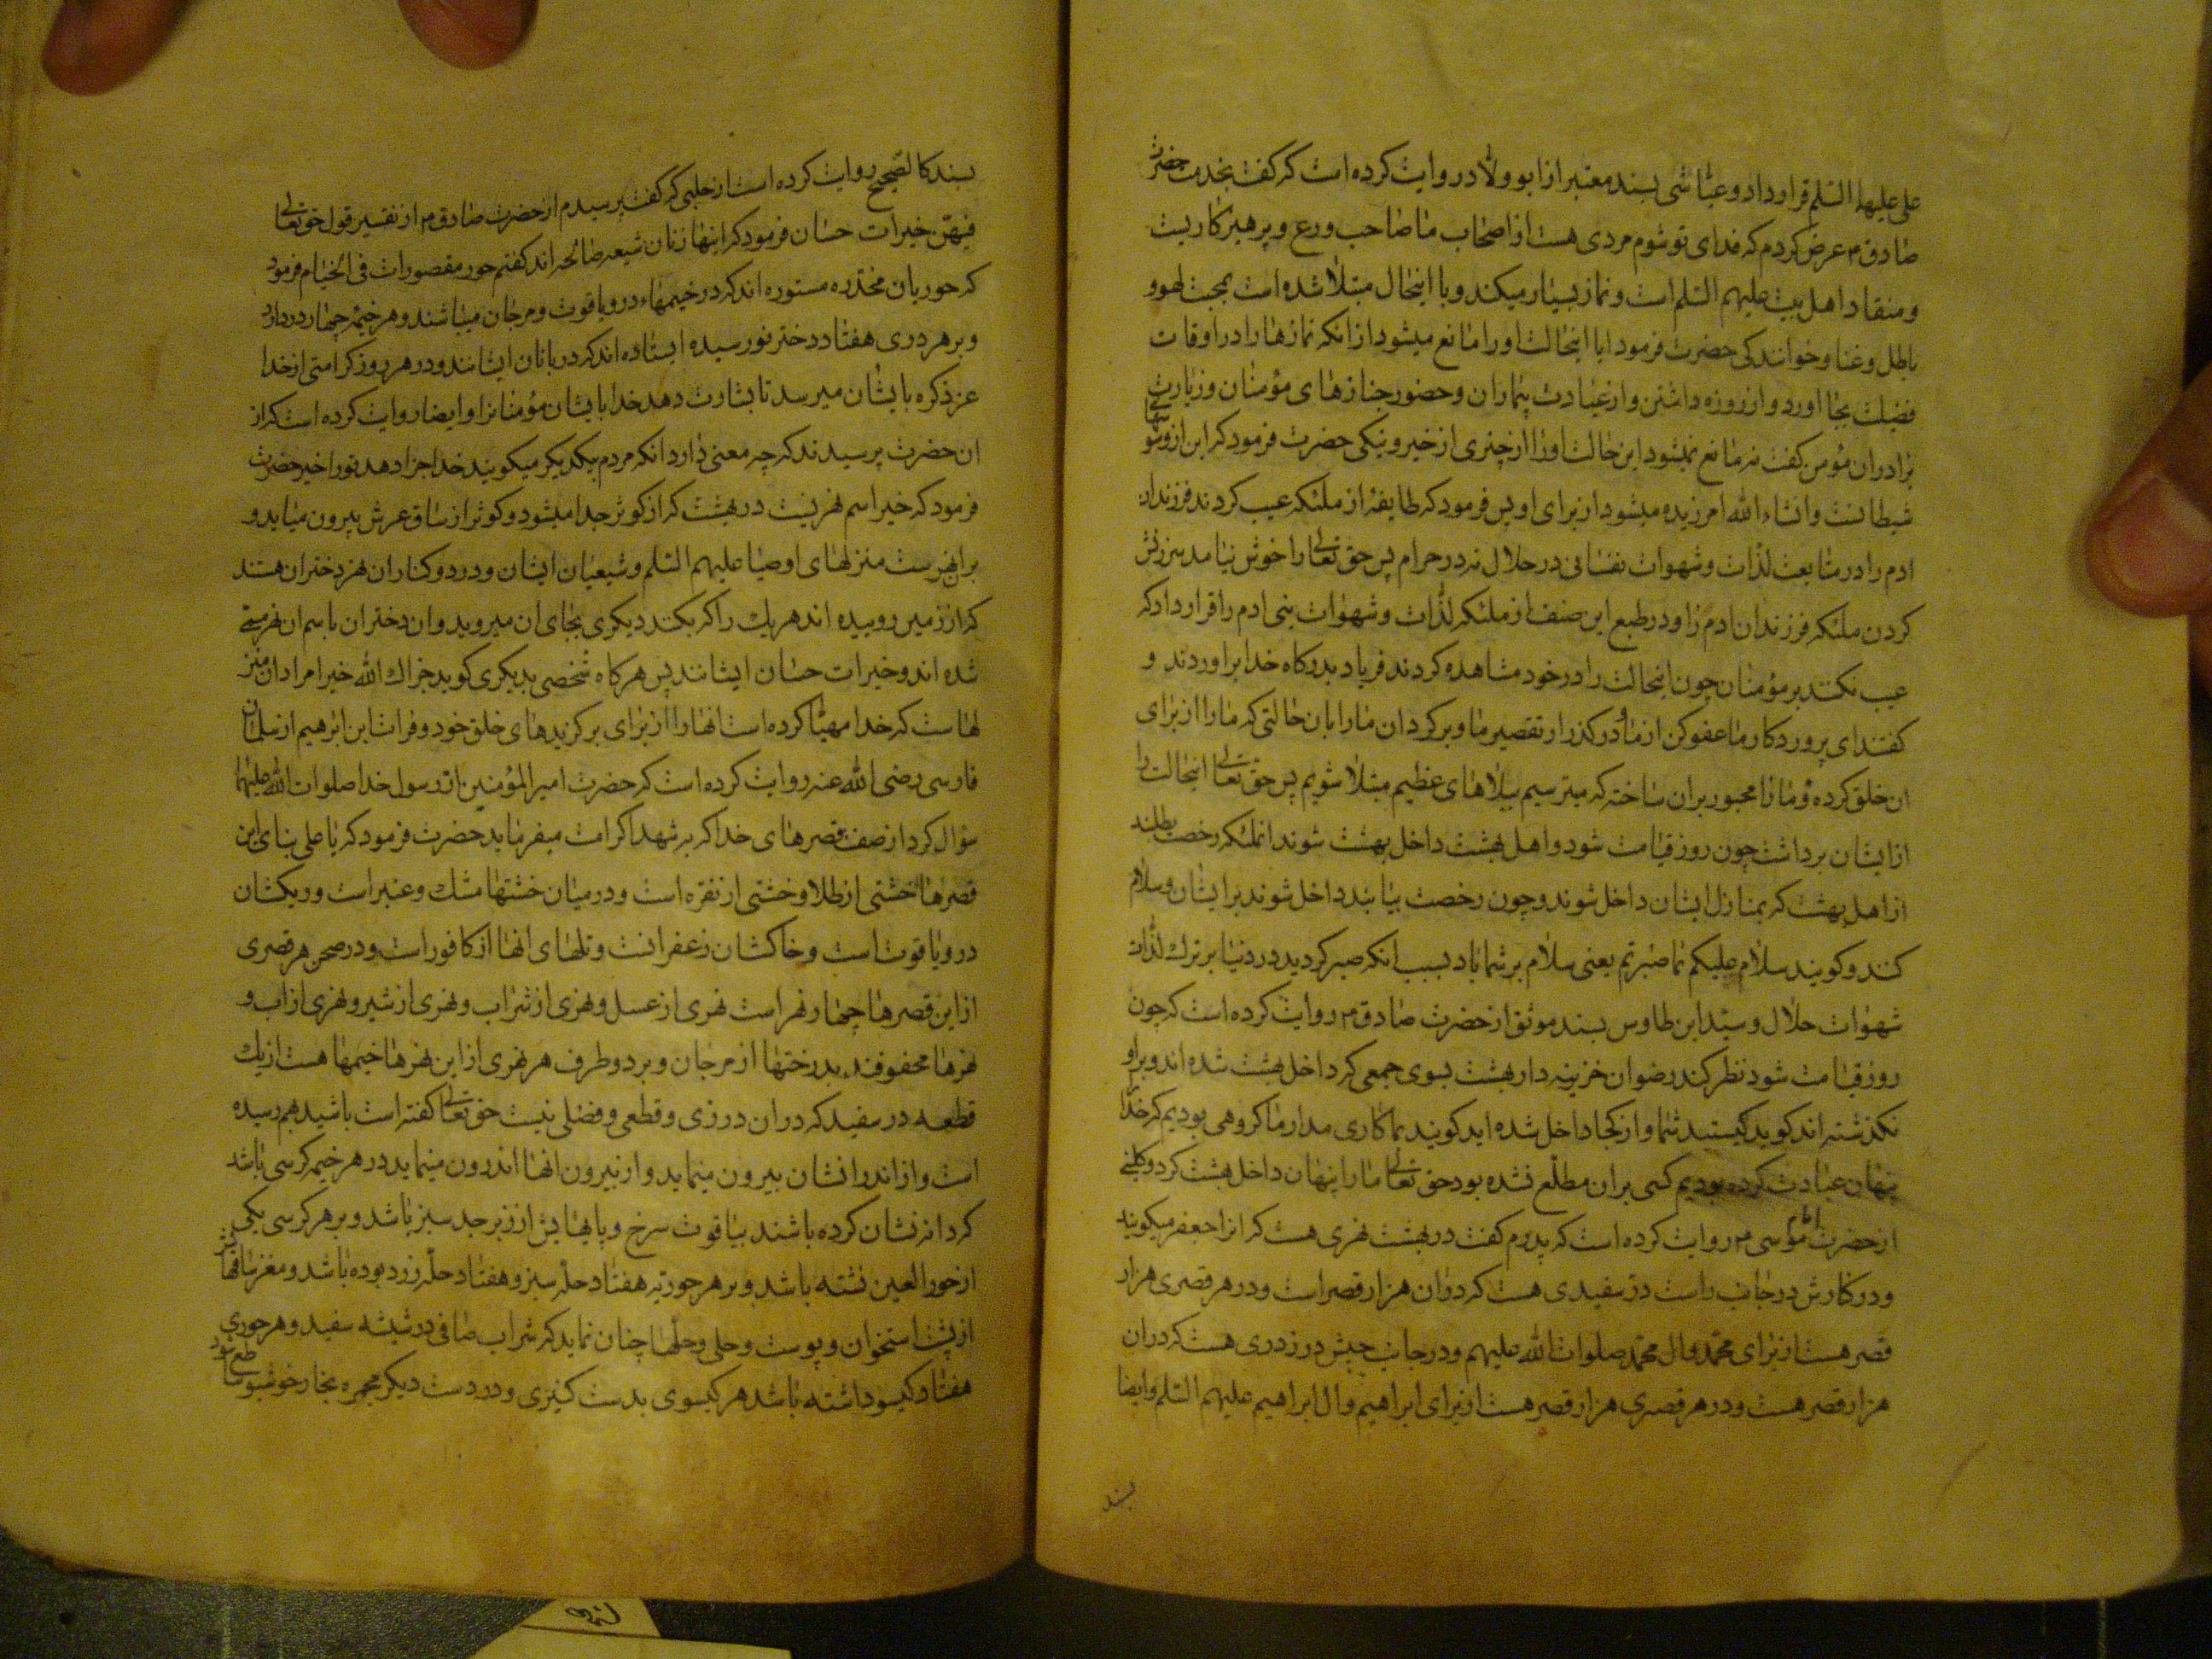 علی علیهما السلم قرار داد و عیاشی بسند معتبر از ابو ولاد روایت کرده است که کفت بخدمت حضرت
صادق م عرض کردم که فدای تو شوم مردی هست از اصحاب ما صاحب ورع و پرهیزکاریست
و منقاد اهل بیت علیهم السلم است و نماز بسیار میکند و با اینحال مبتلا شده است بمحبت لهو و
باطل و غنا و خوانندکی حضرت فرمود ایا اینحالت او را مانع میشود از انکه نمازها را در اوقات
فضیلت بجا اورد و از روزه داشتن و از عیادت بیماران و حضور جنازهای مؤمنان و زیارت
برادران مؤمن کفت نه مانع نمیشود این حالت او را از چیزی از خیر و نیکی حضرت فرمود که این از وسوسهای
شیطانست و انشاء الله امرزیده میشود از برای او پس فرمود که طایفهٔ از ملئکه عیب کردند فرزندان
ادم را در متابعت لذات و شهوات نفسانی در حلال نه در حرام پس حق تعالی را خوش نیامد سرزنش
کردن ملئکه فرزندان ادم را و در طبع این صنف از ملئکه لذات و شهوات بنی ادم را قرار داد که
عیب نکنند بر مؤمنان چون اینحالت را در خود مشاهده کردند فریاد بدرکاه خدا براوردند و
کفتند ای پروردکار ما عفو کن از ما و درکذر از تقصیر ما و برکردان ما را بان حالتی که ما را از برای
ان خلق کردهٔ و ما را مجبور بران ساختهٔ که میترسیم ببلاهای عظیم مبتلا شویم پس حق تعالی اینحالت را
از ایشان برداشت چون روز قیامت شود و اهل بهشت داخل بهشت شوند ان ملئکه رخصت بطلبند
از اهل بهشت که بمنازل ایشان داخل شوند و چون رخصت بیابند داخل شوند بر ایشان و سلام
کنند و کویند سلام علیکم بما صبرتم یعنی سلام بر شما باد بسبب انکه صبر کردید در دنیا بر ترک لذات
شهوات حلال و سید ابن طاوس بسند موثق از حضرت صادق م روایت کرده است که چون
روز قیامت شود نظر کند رضوان خزینه دار بهشت بسوی جمعی که داخل بهشت شده اند و بر او
نکذشته اند کوید کیستید شما و از کجا داخل شده اید کویند بما کاری مدار ما کروهی بودیم که خدا را
پنهان عبادت کرده بودیم کسی بران مطلع نشده بود حق تعالی ما را پنهان داخل بهشت کرد و کلینی
از حضرت امام موسی م روایت کرده است که پدرم کفت در بهشت نهری هست که انرا جعفر میکویند
و در کنارش در جانب راست در سفیدی هست که دران هزار قصر است و در هر قصری هزار
قصر هست از برای محمد و ال محمد صلوات الله علیهم و در جانب چپش در زردی هست که دران
هزار قصر هست و در هر قصری هزار قصر هست از برای ابراهیم و ال ابراهیم علیهم السلم و ایضا
بسند
بسند کالصحیح روایت کرده است از حلبی که کفت پرسیدم از حضرت صادق م از تفسیر قول حق تعالی
فیهن خیرات حسان فرمود که اینها زنان شیعه صالحه اند کفتم حور مقصورات فی الخیام فرمود
که حوریان مخدره مستوره اند که در خیمهاء در و یاقوت و مرجان میباشند و هر خیمه چهار در دارد
و بر هر دری هفتاد دختر نورسیده ایستاده اند که دربانان ایشانند و در هر روز کرامتی از خدا
عز ذکره بایشان میرسد تا بشارت دهد خدا بایشان مؤمنانرا و ایضا روایت کرده است که از
ان حضرت پرسیدند که چه معنی دارد انکه مردم بیکدیکر میکویند خدا جزا دهد تو را خیر حضرت
فرمود که خیر اسم نهریست در بهشت که از کوثر جدا میشود و کوثر از ساق عرش بیرون میاید و
بران نهرست منزلهای اوصیا علیهم السلم و شیعیان ایشان و در دو کنار ان نهر دختران هستند
که از زمین روییده اند هر یک را که بکنند دیکری بجای ان میروید و ان دختران باسم ان نهر مسمی
شده اند و خیرات حسان ایشانند پس هرکاه شخصی بدیکری کوید جزاک الله خیرا مراد ان منز
لهاست که خدا مهیا کرده است انها را از برای برکزیدهای خلق خود و فرات ابن ابرهیم از سلمان
فارسی رضی الله عنه روایت کرده است که حضرت امیر المؤمنین از رسول خدا صلوات الله علیهما
سؤال کرد از صفت قصرهای خدا که به شهدا کرامت میفرماید حضرت فرمود که یا علی بنای این
قصرها خشتی از طلا و خشتی از نقره است و در میان خشتها مشک و عنبر است و ریکشان
در و یاقوت است و خاکشان زعفرانست و تلهای انها از کافور است و در صحن هر قصری
از این قصرها چهار نهر است نهری از عسل و نهری از شراب و نهری از شیر و نهری از اب و
نهرها محفوفند بدرختها از مرجان و بر دو طرف هر نهری از این نهرها خیمها هست از یک
قطعه در سفید که دران درزی و قطعی و فصلی نیست حق تعالی کفته است باشید بهم رسیده
است و از اندرانشان بیرون مینماید و از بیرون انها اندرون مینماید در هر خیمه کرسی باشد
کرداترنشان کرده باشند بیاقوت سرخ و پایهایش از زبرجد سبز باشد و بر هر کرسی یکی
از حور العین نشسته باشد و بر هر حوریه هفتاد حله سبز و هفتاد حله زرد بوده باشد و مغز ساقهایش
از پشت استخوان و پوست و حلی و حلها چنان نماید که شراب صافی در شیشه سفید و هر حوری
هفتاد کیسو داشته باشد هر کیسوی بدست کنیزی و در دست دیکر مجمره بخار خوشبو ساطع شود